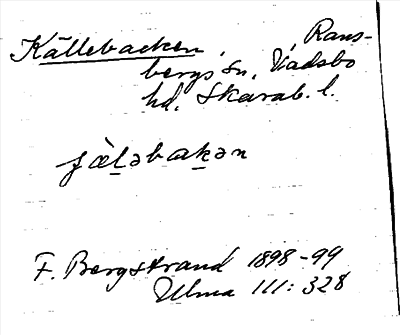 Källebacken, Rans-
bergs sn, Vadsbo
hd, Skarab. l.
jæ̀l̲əbak̲ən
F. Bergstrand 1898-99
Ulma 111: 328